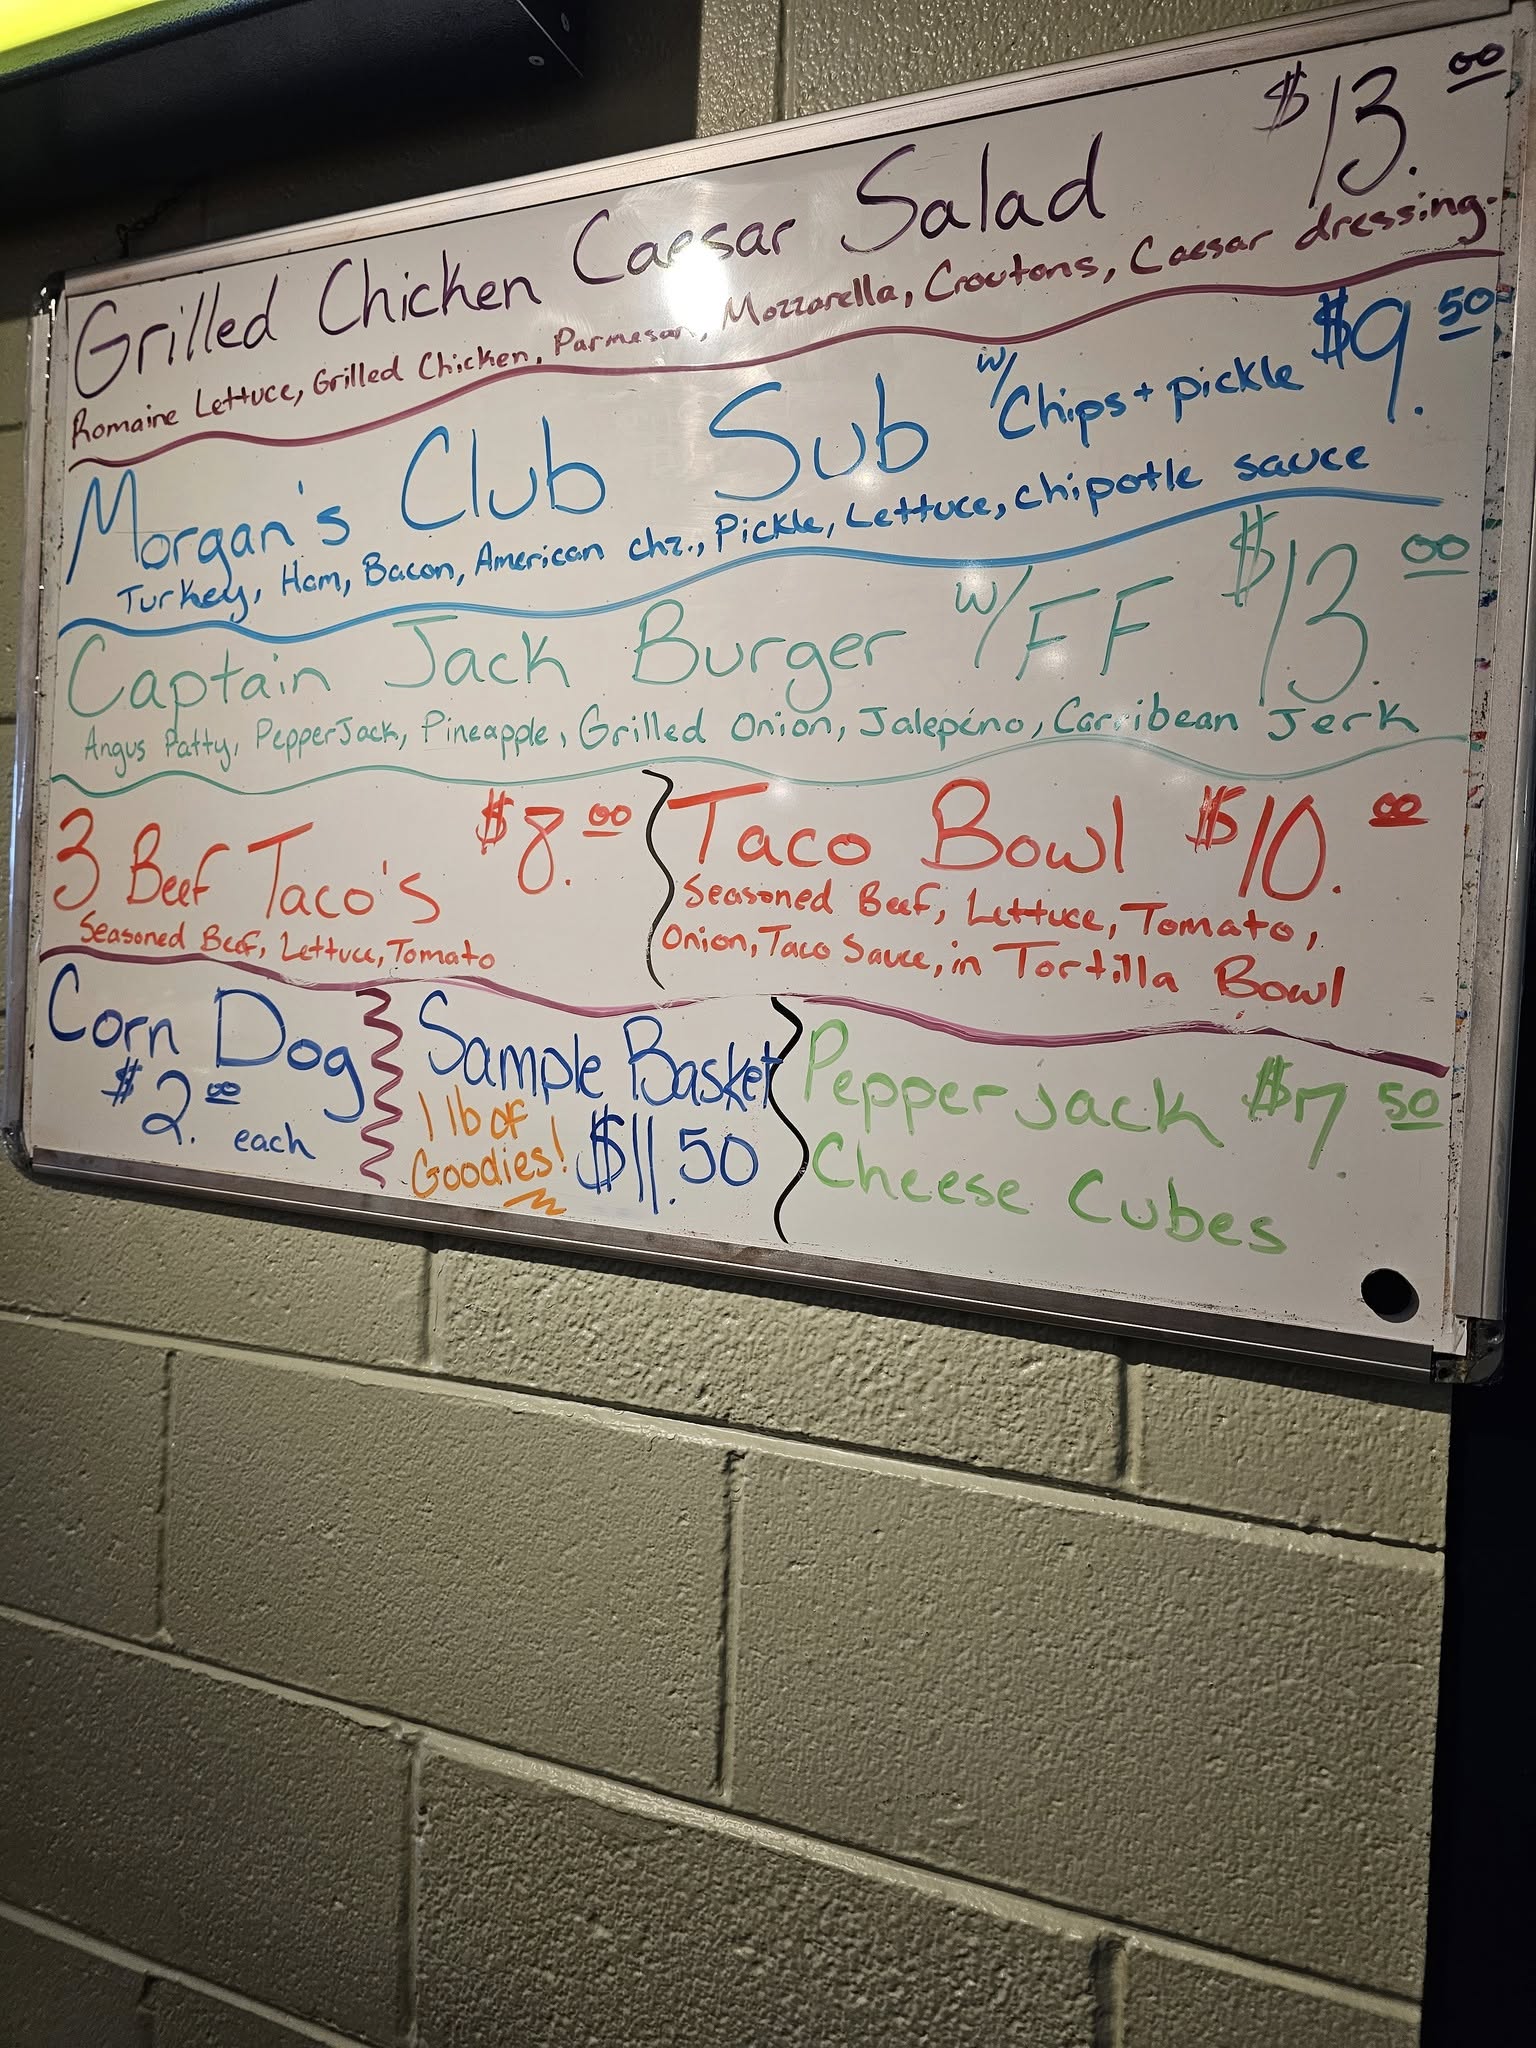 Grilled Chicken Caesar Salad $13.00
Romaine Lettuce, Grilled Chicken, Parmesan, Mozzarella, Croutons, Caesar dressing.
Morgan's Club Sub w/ Chips + pickle $9.50
Turkey, Ham, Bacon, American chz., Pickle, Lettuce, chipotle sauce
Captain Jack Burger w/ FF $13.00
Angus Patty, PepperJack, Pineapple, Grilled Onion, Jalepéno, Carribean Jerk
3 Beef Taco's $8.00
Seasoned Beef, Lettuce, Tomato
Taco Bowl $10.00
Seasoned Beef, Lettuce, Tomato,
Onion, Taco Sauce, in Tortilla Bowl
Corn Dog
$2.00 each
Sample Basket
1 lb of
Goodies! $11.50
Pepper Jack $7.50
Cheese Cubes